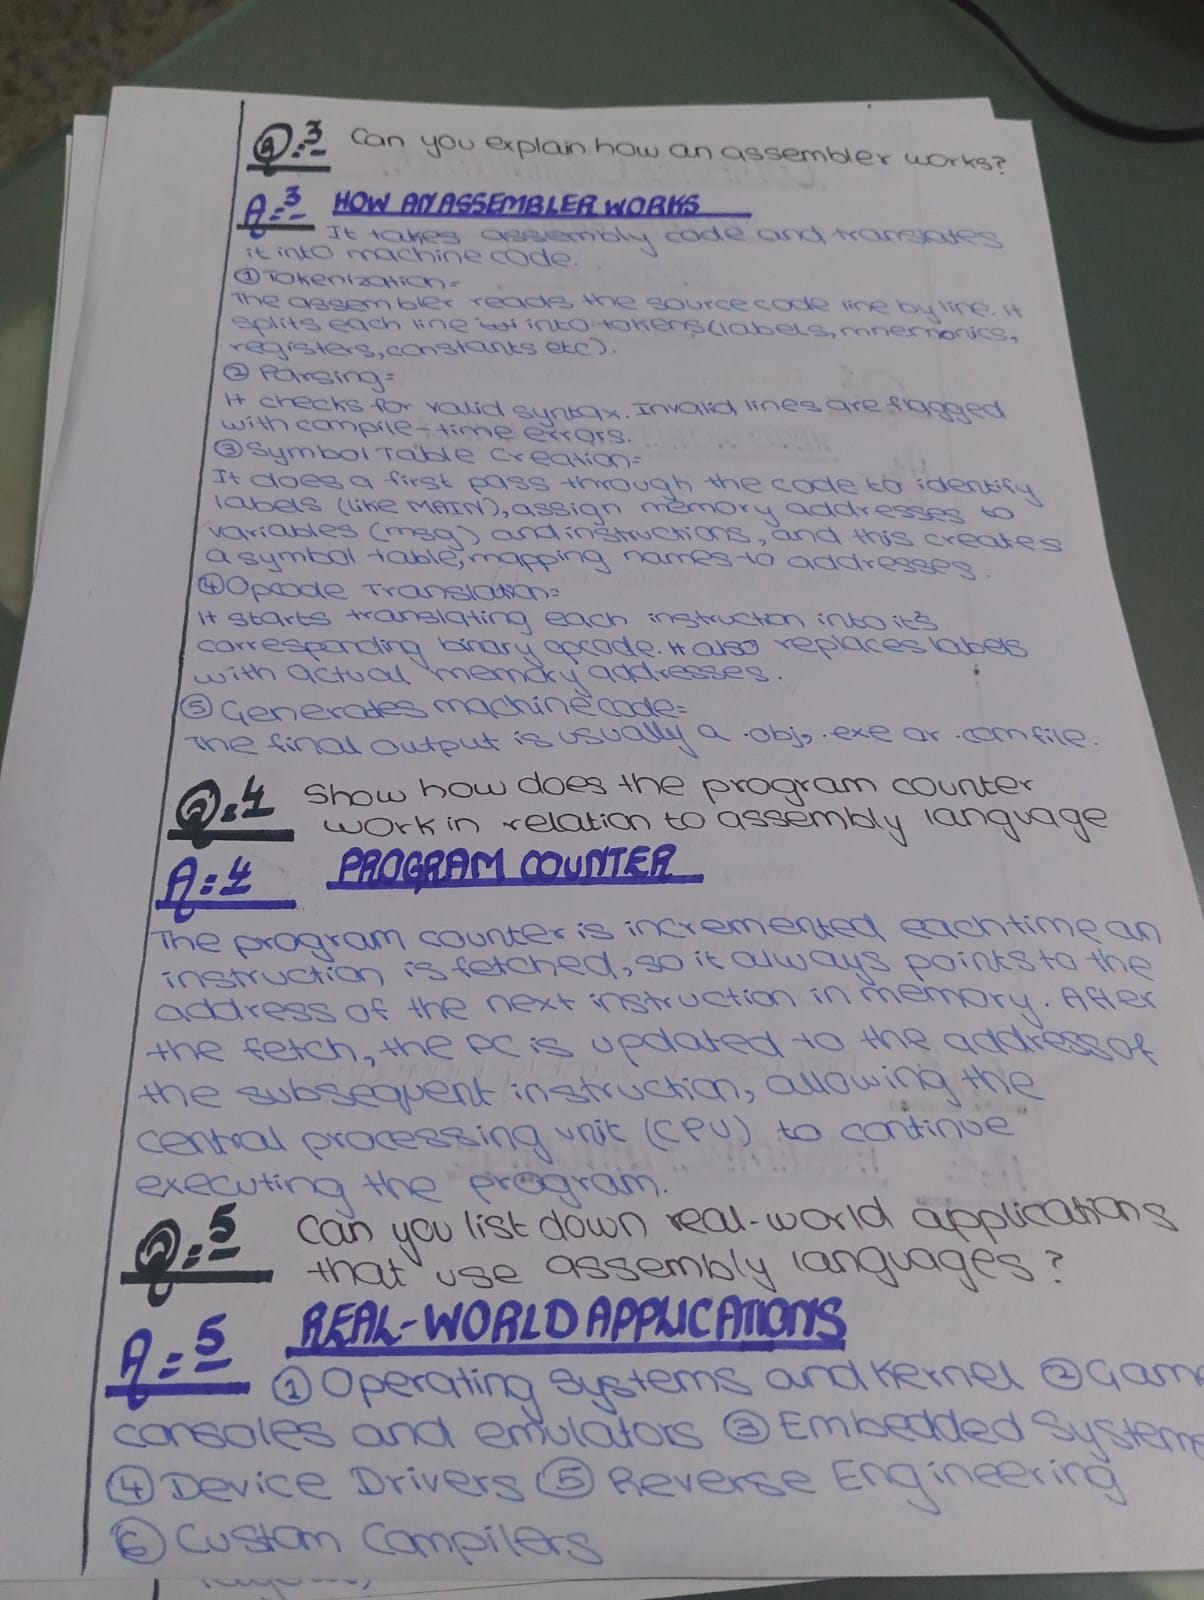 Q:3 Can you explain how an assembler works?
A:3 HOW AN ASSEMBLER WORKS
It takes assembly code and translates
it into machine code.
① Tokenization:
The assembler reads the source code line by line. It
splits each line into tokens (labels, mnemonics,
registers, constants etc).
② Parsing:
It checks for valid syntax. Invalid lines are flagged
with compile-time errors.
③ Symbol Table Creation:
It does a first pass through the code to identify
labels (like MAIN), assign memory addresses to
variables (msg) and instructions, and this creates
a symbol table, mapping names to addresses.
④ Opcode Translation:
It starts translating each instruction into it's
corresponding binary opcode. It also replaces labels
with actual memory addresses.
⑤ Generates machine code:
The final output is usually a .obj, .exe or .com file.
Q:4 Show how does the program counter
work in relation to assembly language
A:4 PROGRAM COUNTER
The program counter is incremented each time an
instruction is fetched, so it always points to the
address of the next instruction in memory. After
the fetch, the PC is updated to the address of
the subsequent instruction, allowing the
central processing unit (CPU) to continue
executing the program.
Q:5 Can you list down real-world applications
that use assembly languages?
A:5 REAL-WORLD APPLICATIONS
① Operating Systems and Kernel ② Game
consoles and emulators ③ Embedded Systems
④ Device Drivers ⑤ Reverse Engineering
⑥ Custom Compilers